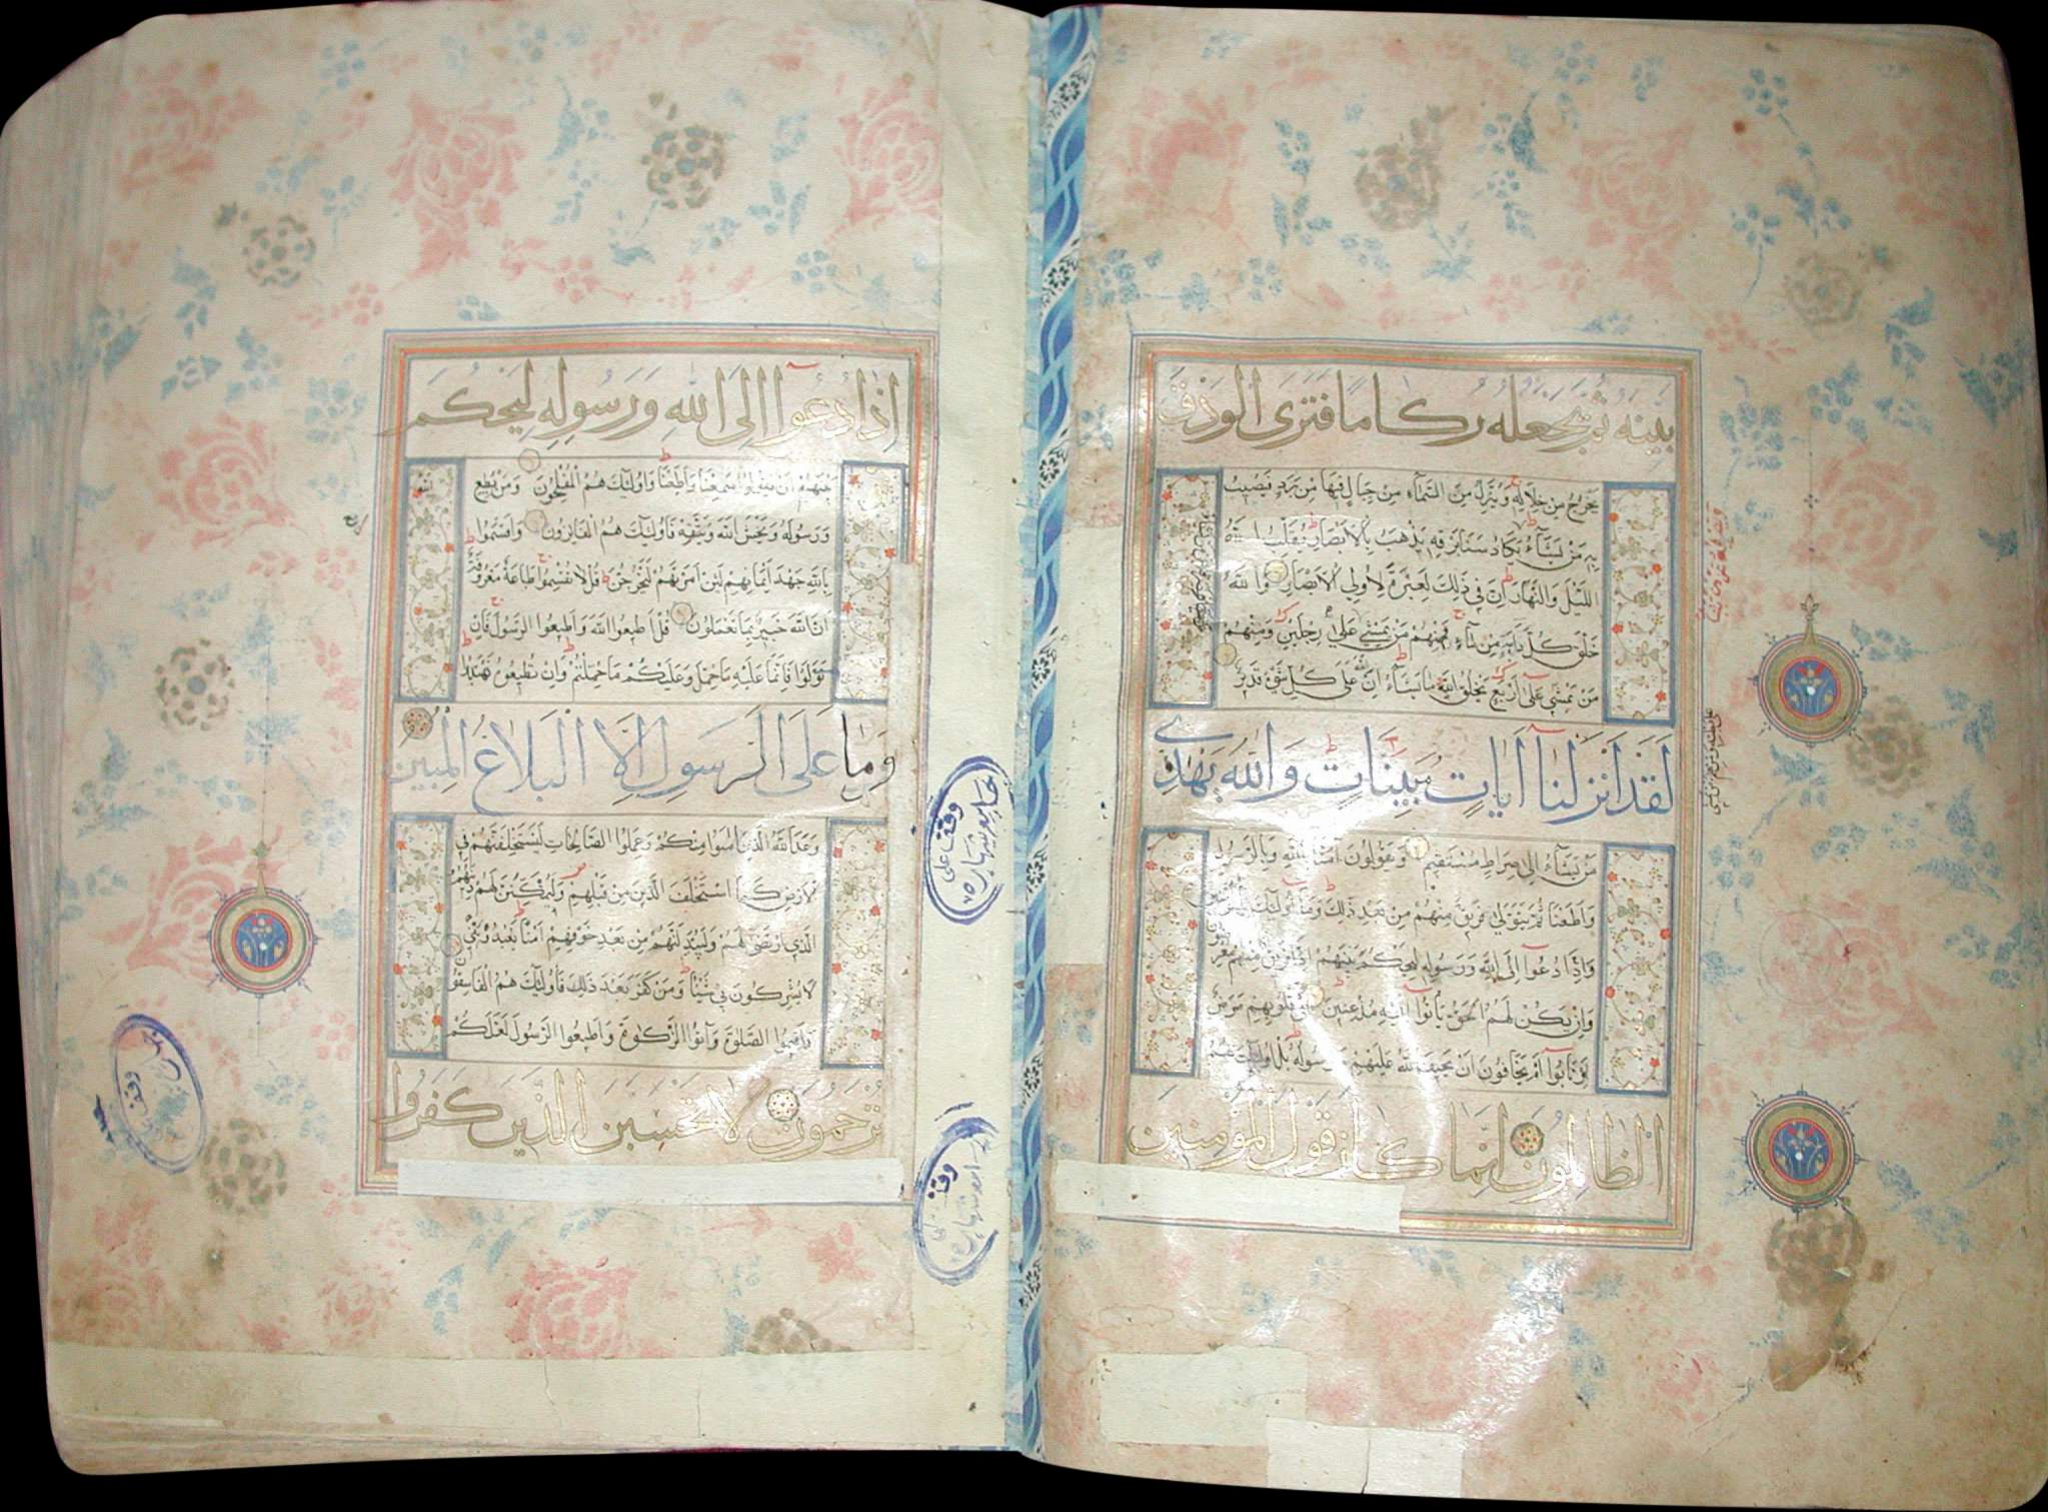 بينه ثم يجعله ركاما فترى الودق
يخرج من خلاله وينزل من السماء من جبال فيها من برد فيصيب
به من يشاء يكاد سنا برقه يذهب بالابصار يقلب الله
الليل والنهار ان في ذلك لعبرة لاولي الابصار والله
خلق كل دابة من ماء فمنهم من يمشي على رجلين ومنهم
من يمشي على اربع يخلق الله ما يشاء ان الله على كل شئ قدير
لقد انزلنا آيات مبينات والله يهدي
من يشاء الى صراط مستقيم ويقولون آمنا بالله وبالرسول
واطعنا ثم يتولى فريق منهم من بعد ذلك وما اولئك بالمؤمنين
واذا دعوا الى الله ورسوله ليحكم بينهم اذا فريق منهم معرضون
وان يكن لهم الحق يأتوا اليه مذعنين أفي قلوبهم مرض
ام ارتابوا ام يخافون ان يحيف الله عليهم ورسوله بل اولئك هم
الظالمون انما كان قول المؤمنين
اذا دعوا الى الله ورسوله ليحكم
بينهم ان يقولوا سمعنا واطعنا واولئك هم المفلحون ومن يطع الله
ورسوله ويخش الله ويتقه فاولئك هم الفائزون واقسموا
بالله جهد ايمانهم لئن امرتهم ليخرجن قل لا تقسموا طاعة معروفة
ان الله خبير بما تعملون قل اطيعوا الله واطيعوا الرسول فان
تولوا فانما عليه ما حمل وعليكم ما حملتم وان تطيعوه تهتدوا
وما على الرسول الا البلاغ المبين
وعد الله الذين آمنوا منكم وعملوا الصالحات ليستخلفنهم في
الارض كما استخلف الذين من قبلهم وليمكنن لهم دينهم
الذي ارتضى لهم وليبدلنهم من بعد خوفهم امنا يعبدونني
لا يشركون بي شيئا ومن كفر بعد ذلك فاولئك هم الفاسقون
واقيموا الصلوة وآتوا الزكوة واطيعوا الرسول لعلكم
ترحمون لا تحسبن الذين كفروا
وقف على
جامع شهاره
وقف